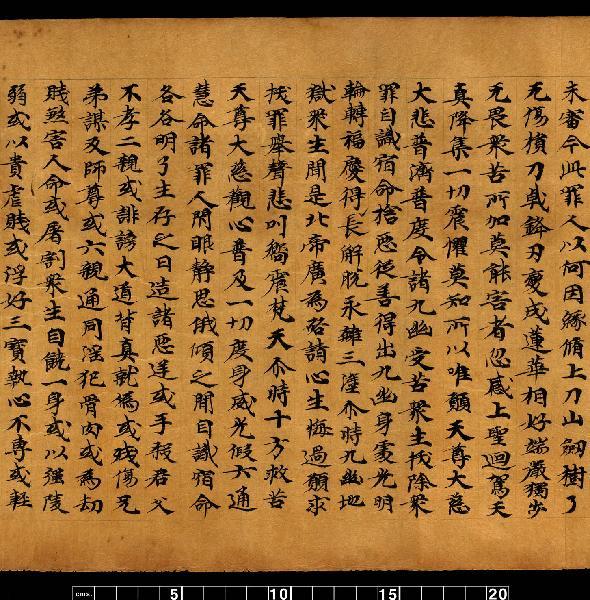 未審今此罪人以何因緣循上刀山劒樹了
无傷損刀戟鋒刃變成蓮華相好端嚴獨步
无畏衆苦所加莫能害者忽感上聖迴駕天
真降集一切震懼莫知所以唯願天尊大慈
大悲普濟普度令諸九幽受苦衆生拔除衆
罪自識宿命捨惡從善得出九幽身處光明
輪轉福慶得長解脫永離三塗尒時九幽地
獄衆生聞是北帝廣為咨請心生悔過願求
拔罪舉聲悲叫響震梵天尒時十方救苦
天尊大慈觀心普及一切度身威光假六通
慧命諸罪人閇眼静思俄傾之間自識宿命
各各明了生存之日造諸惡逆或手殺君父
不孝二親或誹謗大道背真就偽或殘傷兄
弟謀及師尊或六親通同淫犯骨肉或為劫
賊煞害人命或屠割衆生自饒一身或以強陵
弱或以貴虐賤或浮好三寶執心不專或輕